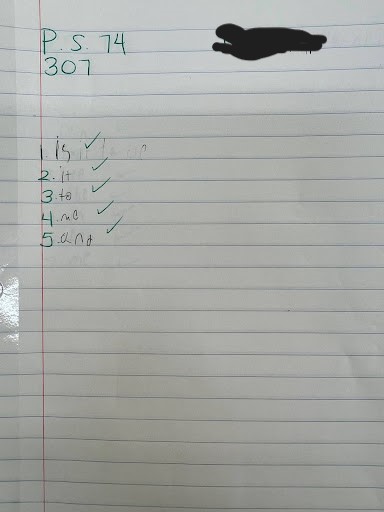 P.S. 74
307
1. is
2. it
3. to
4. me
5. and